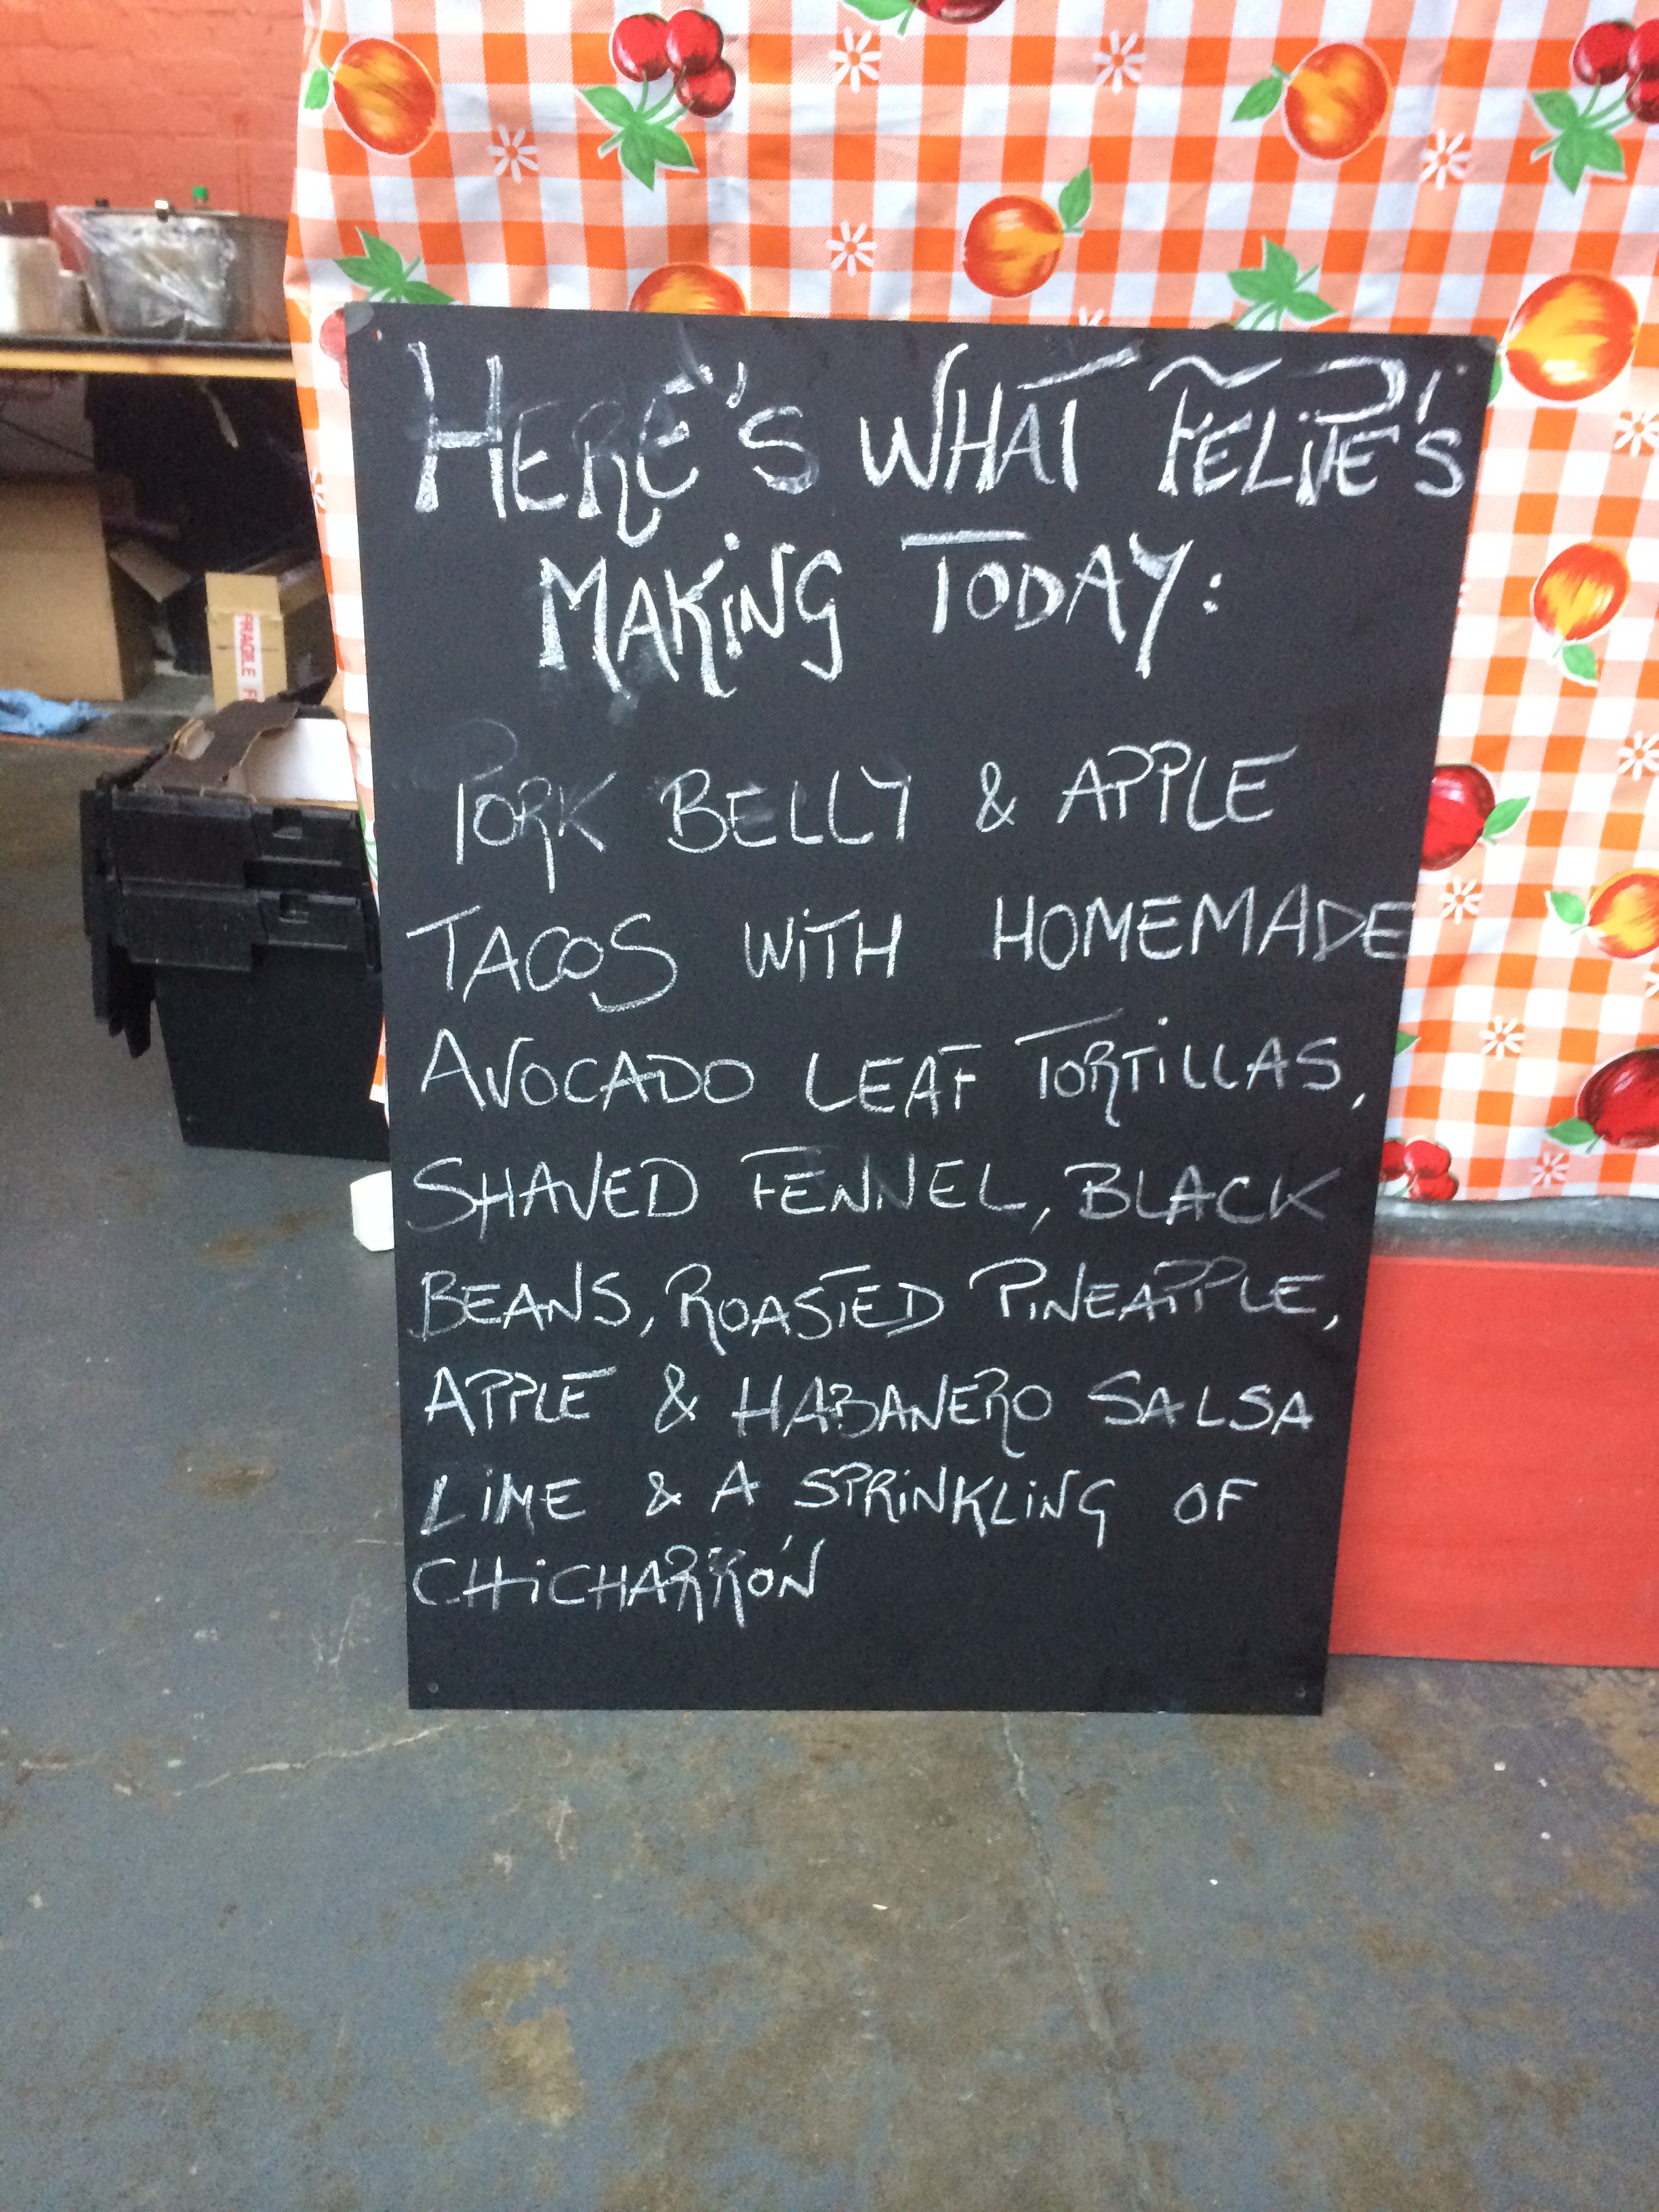 HERE'S WHAT FELIPE'S
MAKING TODAY:
PORK BELLY & APPLE
TACOS WITH HOMEMADE
AVOCADO LEAF TORTILLAS,
SHAVED FENNEL, BLACK
BEANS, ROASTED PINEAPPLE,
APPLE & HABANERO SALSA
LIME & A SPRINKLING OF
CHICHARRÓN
FRAGILE